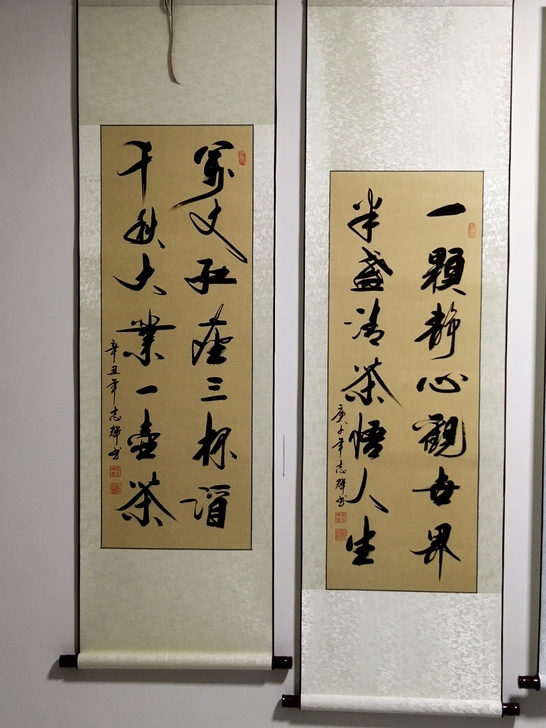 一顆静心觀世界
半盏清茶悟人生
庚子年志輝书
萬丈紅塵三杯酒
千秋大業一壶茶
辛丑年志輝书